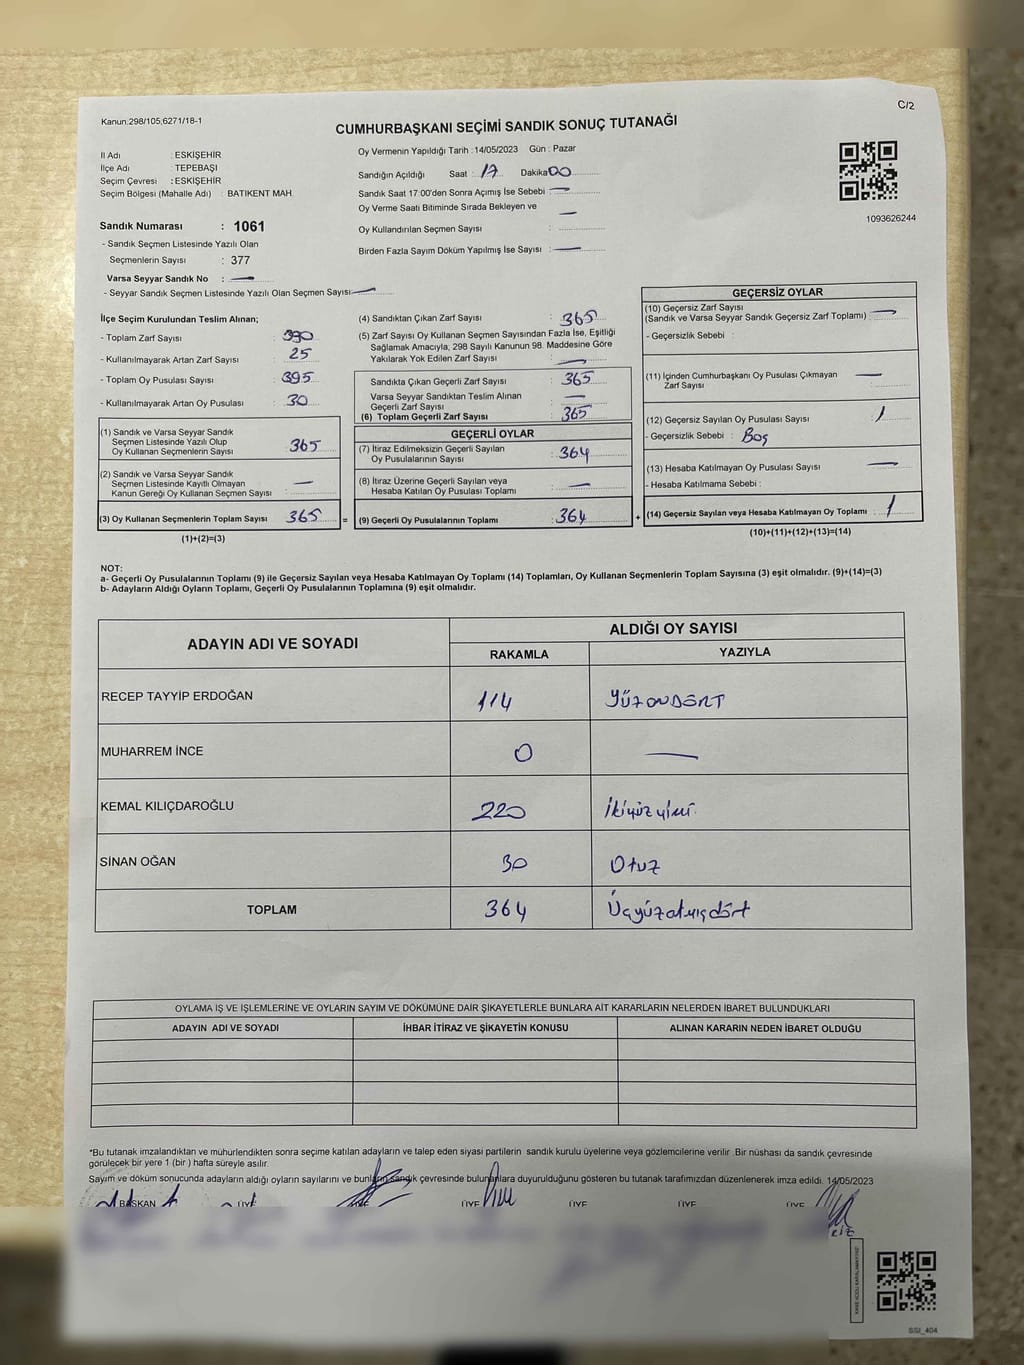 C/2
Kanun:298/105,6271/18-1
CUMHURBAŞKANI SEÇİMİ SANDIK SONUÇ TUTANAĞI
İl Adı : ESKİŞEHİR
İlçe Adı : TEPEBAŞI
Seçim Çevresi : ESKİŞEHİR
Seçim Bölgesi (Mahalle Adı) : BATIKENT MAH.
Oy Vermenin Yapıldığı Tarih :14/05/2023 Gün : Pazar
Sandığın Açıldığı Saat : 17 Dakika 00
Sandık Saat 17:00'den Sonra Açımış İse Sebebi : —
Oy Verme Saati Bitiminde Sırada Bekleyen ve
Oy Kullandırılan Seçmen Sayısı : —
Birden Fazla Sayım Döküm Yapılmış İse Sayısı : —
1093626244
Sandık Numarası : 1061
- Sandık Seçmen Listesinde Yazılı Olan
Seçmenlerin Sayısı : 377
Varsa Seyyar Sandık No : —
- Seyyar Sandık Seçmen Listesinde Yazılı Olan Seçmen Sayısı: —
İlçe Seçim Kurulundan Teslim Alınan;
- Toplam Zarf Sayısı : 390
- Kullanılmayarak Artan Zarf Sayısı : 25
- Toplam Oy Pusulası Sayısı : 395
- Kullanılmayarak Artan Oy Pusulası : 30
(1) Sandık ve Varsa Seyyar Sandık
Seçmen Listesinde Yazılı Olup
Oy Kullanan Seçmenlerin Sayısı : 365
(2) Sandık ve Varsa Seyyar Sandık
Seçmen Listesinde Kayıtlı Olmayan
Kanun Gereği Oy Kullanan Seçmen Sayısı : —
(3) Oy Kullanan Seçmenlerin Toplam Sayısı : 365
(1)+(2)=(3)
(4) Sandıktan Çıkan Zarf Sayısı : 365
(5) Zarf Sayısı Oy Kullanan Seçmen Sayısından Fazla İse, Eşitliği
Sağlamak Amacıyla, 298 Sayılı Kanunun 98. Maddesine Göre
Yakılarak Yok Edilen Zarf Sayısı : —
Sandıkta Çıkan Geçerli Zarf Sayısı : 365
Varsa Seyyar Sandıktan Teslim Alınan
Geçerli Zarf Sayısı : —
(6) Toplam Geçerli Zarf Sayısı : 365
GEÇERLİ OYLAR
(7) İtiraz Edilmeksizin Geçerli Sayılan
Oy Pusulalarının Sayısı : 364
(8) İtiraz Üzerine Geçerli Sayılan veya
Hesaba Katılan Oy Pusulası Toplamı : —
= (9) Geçerli Oy Pusulalarının Toplamı : 364 +
GEÇERSİZ OYLAR
(10) Geçersiz Zarf Sayısı
(Sandık ve Varsa Seyyar Sandık Geçersiz Zarf Toplamı) : —
- Geçersizlik Sebebi :
(11) İçinden Cumhurbaşkanı Oy Pusulası Çıkmayan
Zarf Sayısı : —
(12) Geçersiz Sayılan Oy Pusulası Sayısı : 1
- Geçersizlik Sebebi : Boş
(13) Hesaba Katılmayan Oy Pusulası Sayısı : —
- Hesaba Katılmama Sebebi :
(14) Geçersiz Sayılan veya Hesaba Katılmayan Oy Toplamı : 1
(10)+(11)+(12)+(13)=(14)
NOT:
a- Geçerli Oy Pusulalarının Toplamı (9) ile Geçersiz Sayılan veya Hesaba Katılmayan Oy Toplamı (14) Toplamları, Oy Kullanan Seçmenlerin Toplam Sayısına (3) eşit olmalıdır. (9)+(14)=(3)
b- Adayların Aldığı Oyların Toplamı, Geçerli Oy Pusulalarının Toplamına (9) eşit olmalıdır.
ADAYIN ADI VE SOYADI ALDIĞI OY SAYISI
RAKAMLA YAZIYLA
RECEP TAYYİP ERDOĞAN 114 YÜZONDÖRT
MUHARREM İNCE 0 —
KEMAL KILIÇDAROĞLU 220 İkiyüzyirmi
SİNAN OĞAN 30 Otuz
TOPLAM 364 Üçyüzatmışdört
OYLAMA İŞ VE İŞLEMLERİNE VE OYLARIN SAYIM VE DÖKÜMÜNE DAİR ŞİKAYETLERLE BUNLARA AİT KARARLARIN NELERDEN İBARET BULUNDUKLARI
ADAYIN ADI VE SOYADI İHBAR İTİRAZ VE ŞİKAYETİN KONUSU ALINAN KARARIN NEDEN İBARET OLDUĞU
*Bu tutanak imzalandıktan ve mühürlendikten sonra seçime katılan adayların ve talep eden siyasi partilerin sandık kurulu üyelerine veya gözlemcilerine verilir .Bir nüshası da sandık çevresinde
görülecek bir yere 1 (bir ) hafta süreyle asılır.
Sayım ve döküm sonucunda adayların aldığı oyların sayılarını ve bunların sandık çevresinde bulunanlara duyurulduğunu gösteren bu tutanak tarafımızdan düzenlenerek imza edildi. 14/05/2023
BAŞKAN ÜYE ÜYE ÜYE ÜYE ÜYE ÜYE
SSI_404